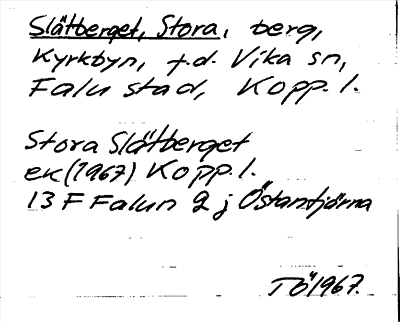 Slätberget, Stora, berg,
Kyrkbyn, f.d. Vika sn,
Falu stad, Kopp. l.
Stora Slätberget
ek (1967) Kopp. l.
13 F Falun 2 j Östantjärna
TÖ 1967.